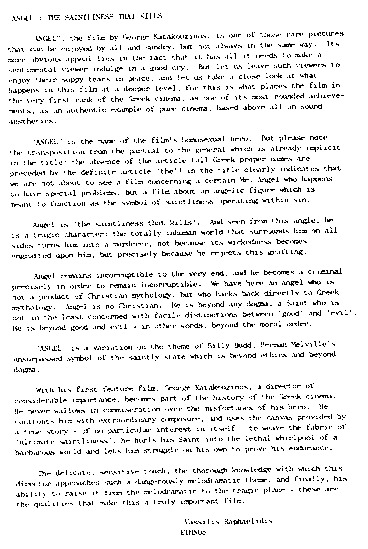 ANGEL : THE SAINTLINESS THAT KILLS
"ANGEL", the film by George Katakouzinos, is one of those rare pictures
that can be enjoyed by all and sundry, but not always in the same way. Its
more obvious appeal lies in the fact that it has all it needs to make a
sentimental viewer indulge in a good cry. But let us leave such viewers to
enjoy their soppy tears in peace, and let us take a close look at what
happens in this film at a deeper level, for this is what places the film in
the very first rank of the Greek cinema, as one of its most rounded achieve-
ments, as an authentic example of pure cinema, based above all on sound
aesthetics.
"ANGEL" is the name of the film's homosexual hero. But please note
the transposition from the partial to the general which is already implicit
in the title: the absence of the article (all Greek proper names are
preceded by the definite article 'the') in the title clearly indicates that
we are not about to see a film concerning a certain Mr. Angel who happens
to have special problems, but a film about an angelic figure which is
meant to function as the symbol of saintliness operating within sin.
Angel is "the saintliness that kills". And seen from this angle, he
is a tragic character: the totally inhuman world that surrounds him on all
sides turns him into a murderer, not because its wickedness becomes
engrafted upon him, but precisely because he rejects this grafting.
Angel remains incorruptible to the very end, and he becomes a criminal
precisely in order to remain incorruptible. We have here an angel who is
not a product of Christian mythology, but who harks back directly to Greek
mythology. Angel is no Christian. He is beyond any dogma, a saint who is
not in the least concerned with facile distinctions between 'good' and 'evil'.
He is beyond good and evil - in other words, beyond the moral order.
"ANGEL" is a variation on the theme of Billy Budd, Herman Melville's
unsurpassed symbol of the saintly state which is beyond ethics and beyond
dogma.
With his first feature film, George Katakouzinos, a director of
considerable importance, becomes part of the history of the Greek cinema.
He never wallows in commiseration over the misfortunes of his hero. He
confronts him with extraordinary composure, and uses the canvas provided by
a true story - of no particular interest in itself - to weave the fabric of
'ultimate saintliness'. He hurls his Saint into the lethal whirlpool of a
barbarous world and lets him struggle on his own to prove his endurance.
The delicate, sensitive touch, the thorough knowledge with which this
director approaches such a dangerously melodramatic theme, and finally, his
ability to raise it from the melodramatic to the tragic plane - these are
the qualities that make this a truly important film.
Vassilis Raphaelidis
ETHNOS